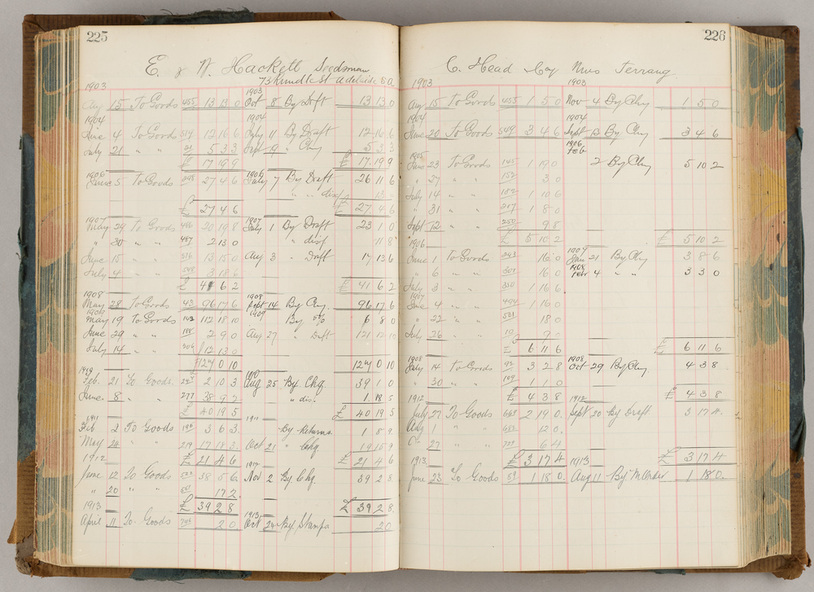 225
E & W. Hackett Seedsman
73 Rundle St Adelaide S.A
1903 1903
Aug 15 To Goods 455 13 13 0 Oct 8 By Dft 13 13 0
1904 1904
June 4 To Goods 12 16 6 July 11 By Draft 12 16 6
July 21 " " 5 3 3 Sept 19 " Chq 5 3 3
£ 17 19 9 £ 17 19 9
1906 1906
June 5 To Goods 27 4 6 July 7 By Draft 26 11 6
" " disc
£ 27 4 6 £ 27 4 6
1907 1907
May 24 To Goods 20 18 8 July 1 By Draft 23 1 0
" 30 " " 497 2 13 0 " disc 11 8
June 15 " " 13 15 0 Aug 3 " Draft 17 13 6
July 4 " "
£ 41 6 2 £ 41 6 2
1908 1908
May 28 To Goods 43 96 17 6 Sept 14 By Chq 96 17 6
1909 1909
May 19 To Goods 112 18 10 By 6 8 0
June 29 " " 2 9 0 Aug 27 " Draft 121 12 10
July 14 " " 12 13 0
£127 0 10 127 0 10
1910 1910
Feb. 21 To Goods 2 10 3 Aug 25 By Chq 39 1 0
June 8 " " 277 38 9 2 " dis. 1 18 5
£ 40 19 5 £ 40 19 5
1911 1911
Feb 2 To Goods 3 6 3 By Returns 1 8 9
May 24 " " 279 17 18 3 Oct 21 " Chq 19 15 9
£ 21 4 6 £ 21 4 6
1912 1912
June 12 To Goods 38 5 6 Nov 2 By Chq 39 2 8
" 20 " " 17 2
£ 39 2 8 £ 39 2 8
1913 1913
April 11 To Goods 2 0 Oct 24 By Stamps 2 0
226
C. Head Coy Nurs Terrang
1903 1903
Aug 15 To Goods 455 1 5 0 Nov 4 By Chq 1 5 0
1904 1904
June 20 To Goods 3 4 6 Sept 13 By Chq 3 4 6
1905 1906
June 23 To Goods 1 9 0 Feb 2 By Chq 5 10 2
" 27 " " 3 0
July 14 " " 1 10 6
" 31 " " 1 8 0
Sept 12 " " 9 8
£ 5 10 2 £ 5 10 2
1906 1907
June 1 To Goods 16 0 Jan 21 By Chq 3 8 6
" 6 " " 16 0 1908 Febr 4 " " 3 3 0
July 3 " " 1 16 6
1907
June 4 " " 1 16 0
" 22 " " 18 0
July 26 " "
£ 6 11 6 £ 6 11 6
1908 1908
July 14 To Goods 3 2 8 Oct 29 By Chq 4 3 8
" 30 " " 1 1 0
£ 4 3 8 £ 4 3 8
1912 1912
July 27 To Goods 2 19 0 Sept 20 By Draft 3 17 4
Aug 1 " " 12 0
" 27 " " 6 4
£ 3 17 4 £ 3 17 4
1913 1913
June 23 To Goods 1 18 0 Aug 11 By M Order 1 18 0